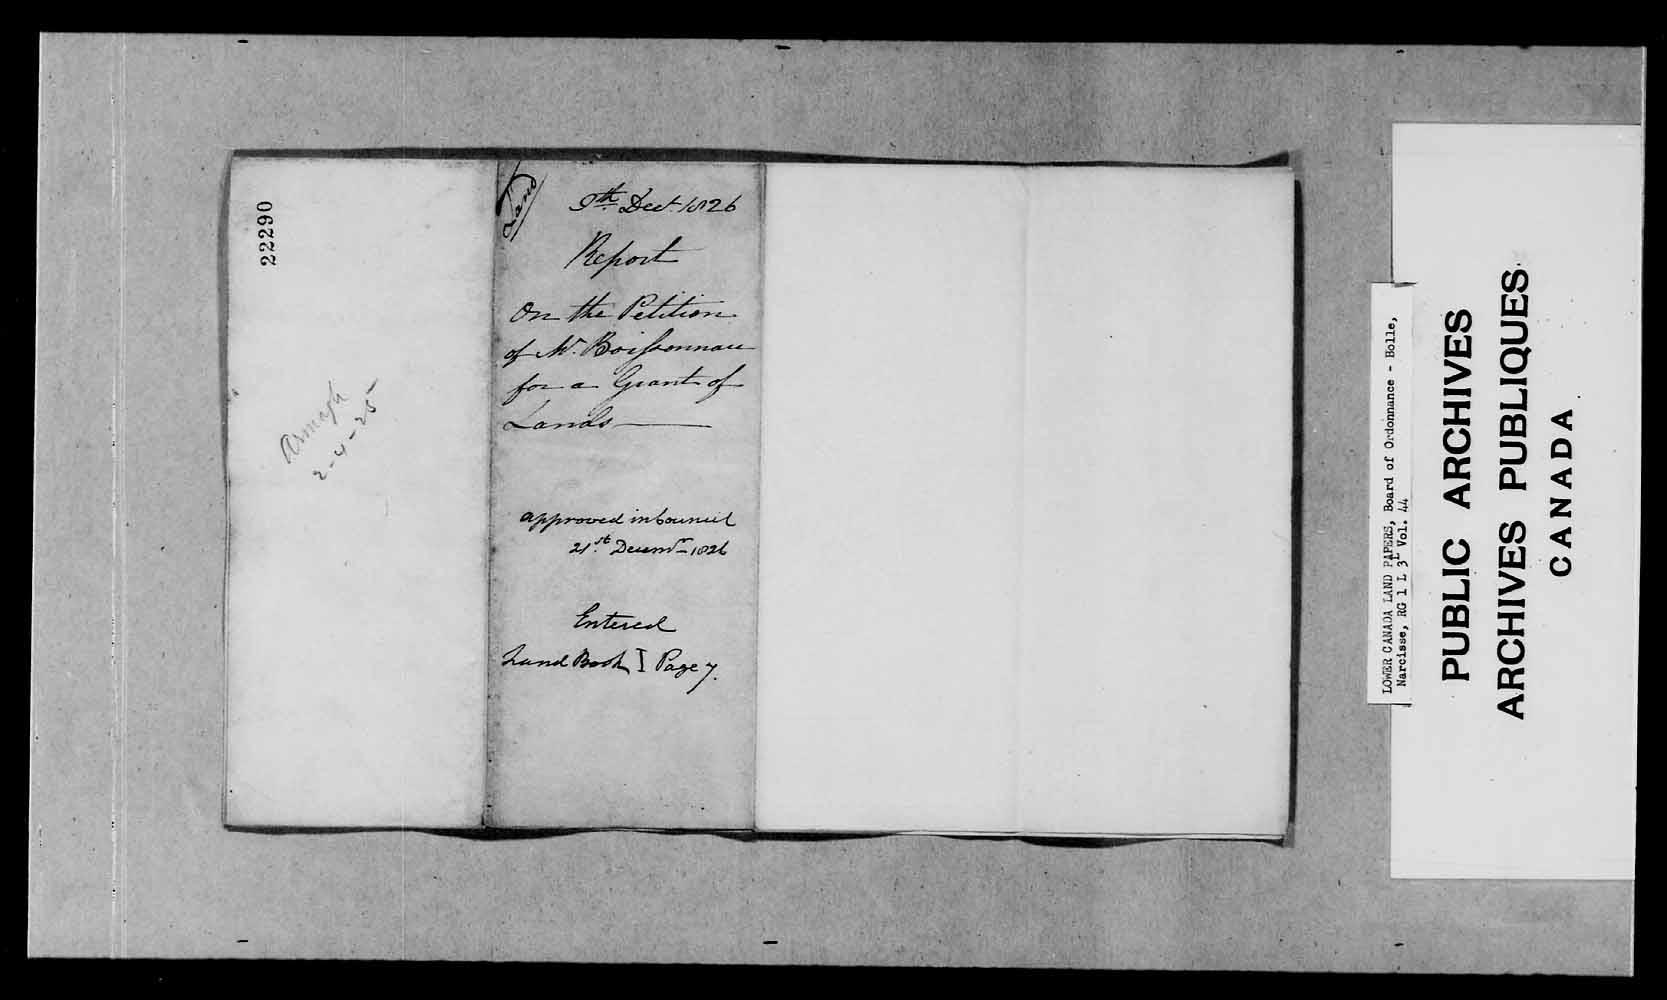 22290
Armagh
2-4-25
Land
9th Decr. 1826
Report
On the Petition
of Mr. Boissonnau
for a Grant of
Lands
approved in Council
21st. Decemr 1826
Entered
Land Book I Page 7.
LOWER CANADA LAND PAPERS, Board of Ordonnance - Bolle,
Narcisse, RG 1 L 3L Vol. 44
PUBLIC ARCHIVES
ARCHIVES PUBLIQUES
CANADA